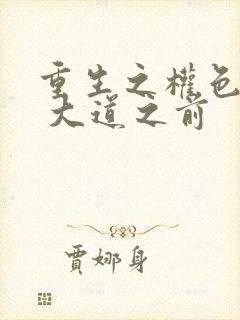 重生之權色
大道之前
賈娜身